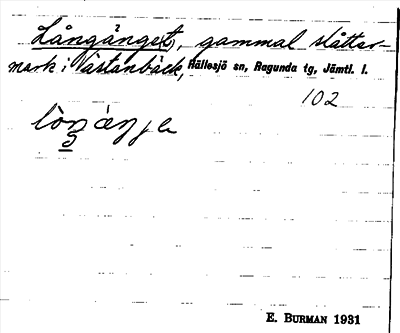 Långänget, gammal slåtter-
mark i Västanbäck, Hällesjö sn, Ragunda tg, Jämtl. l.
102
E. BURMAN 1931